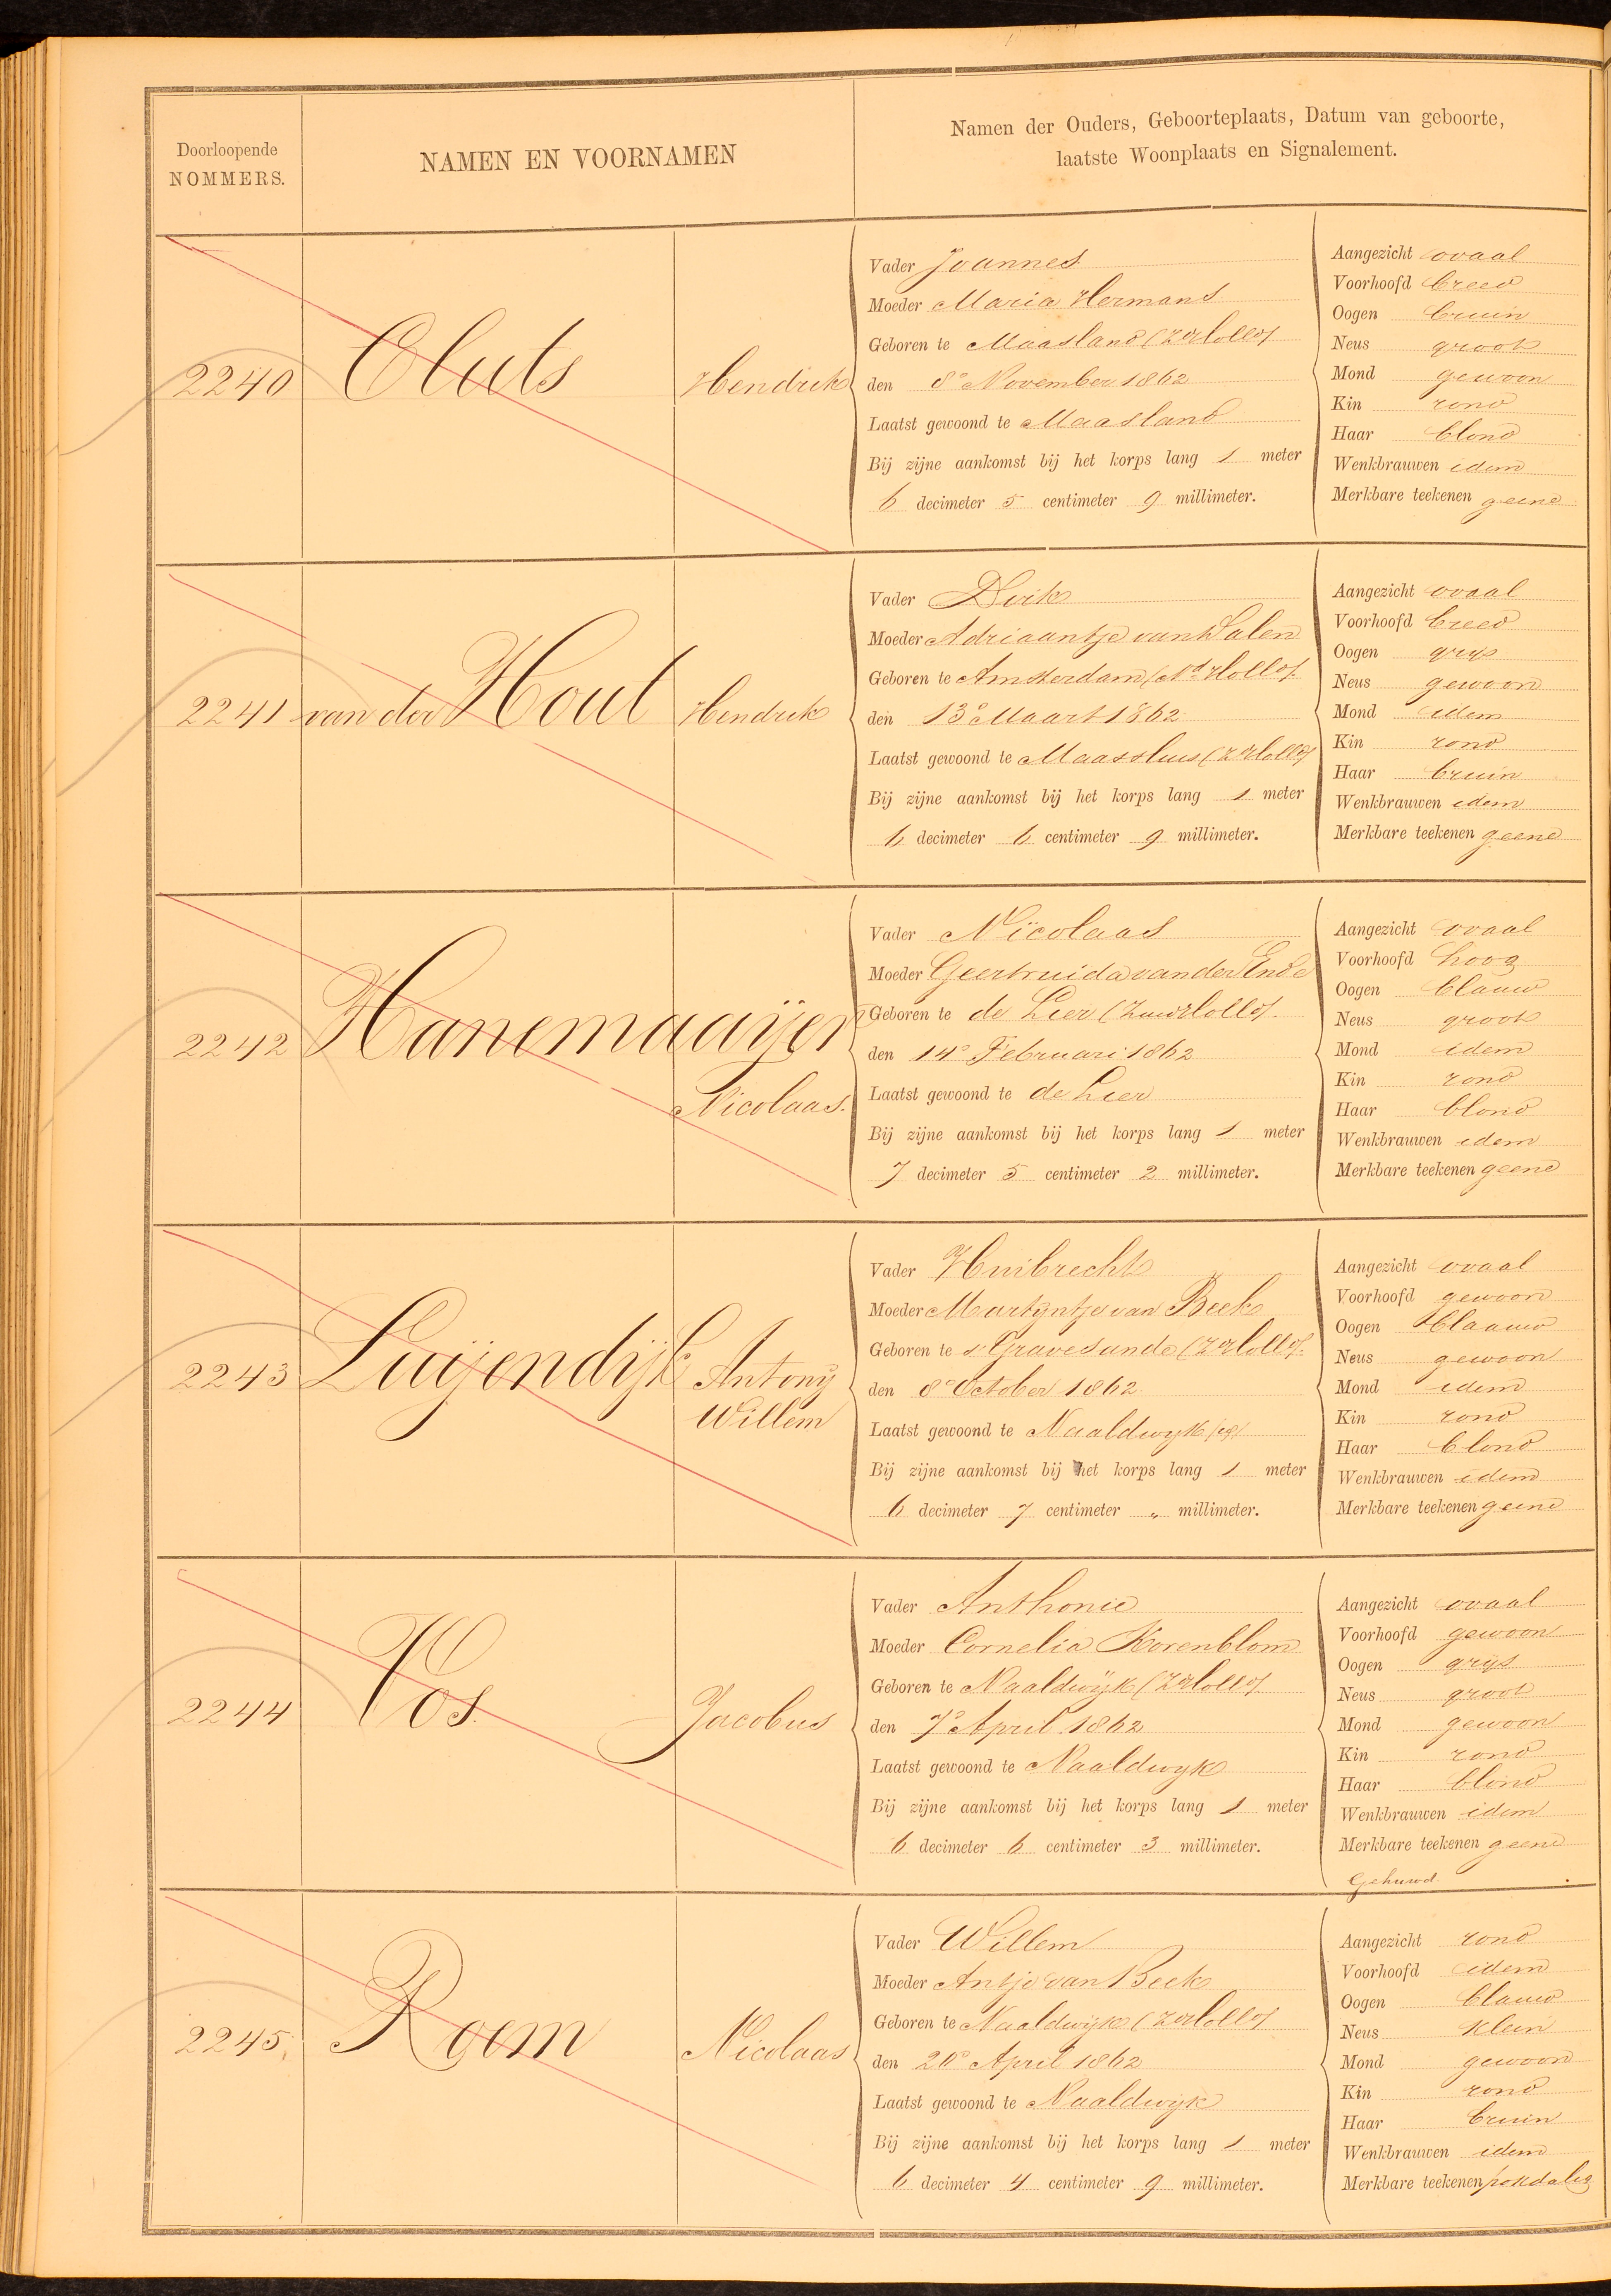 Doorloopende
NOMMERS.
NAMEN EN VOORNAMEN
Namen der Ouders, Geboorteplaats, Datum van geboorte,
laatste Woonplaats en Signalement.
2240
Oluts
Hendrik
Vader Joannes
Moeder Maria Hermans
Geboren te Maasland (ZdHolld)
den 8e November 1862
Laatst gewoond te Maasland
Bij zijne aankomst bij het korps lang 1 meter
6 decimeter 5 centimeter 9 millimeter.
Aangezicht ovaal
Voorhoofd breed
Oogen bruin
Neus groot
Mond gewoon
Kin rond
Haar blond
Wenkbrauwen idem
Merkbare teekenen geene
2241
van der Hout
Hendrik
Vader Dirk
Moeder Adriaantje van
Geboren te Amsterdam (Nd Holld)
den 13e Maart 1862
Laatst gewoond te Maassluis (ZdHolld)
Bij zijne aankomst bij het korps lang 1 meter
6 decimeter 6 centimeter 9 millimeter.
Aangezicht ovaal
Voorhoofd breed
Oogen grijs
Neus gewoon
Mond idem
Kin rond
Haar bruin
Wenkbrauwen idem
Merkbare teekenen geene
2242
Hanemaaijer
Nicolaas.
Vader Nicolaas
Moeder Geertruida van der Ende
Geboren te de Lier (Zuid Holld)
den 14e Februari 1862
Laatst gewoond te de Lier
Bij zijne aankomst bij het korps lang 1 meter
7 decimeter 5 centimeter 2 millimeter.
Aangezicht ovaal
Voorhoofd hoog
Oogen blauw
Neus groot
Mond idem
Kin rond
Haar blond
Wenkbrauwen idem
Merkbare teekenen geene
2243
Luijendijk
Antony
Willem
Vader Huibrecht
Moeder Martijntje van Beek
Geboren te s'Gravesande (ZdHolld)
den 8e October 1862
Laatst gewoond te Naaldwyk
Bij zijne aankomst bij het korps lang 1 meter
6 decimeter 7 centimeter „ millimeter.
Aangezicht ovaal
Voorhoofd gewoon
Oogen blaauw
Neus gewoon
Mond idem
Kin rond
Haar blond
Wenkbrauwen idem
Merkbare teekenen geene
2244
Vos.
Jacobus
Vader Anthonie
Moeder Cornelia Korenblom
Geboren te Naaldwijk (ZdHolld)
den 7e April 1862
Laatst gewoond te Naaldwyk
Bij zijne aankomst bij het korps lang 1 meter
6 decimeter 6 centimeter 3 millimeter.
Aangezicht ovaal
Voorhoofd gewoon
Oogen grijs
Neus groot
Mond gewoon
Kin rond
Haar blond
Wenkbrauwen idem
Merkbare teekenen geene
Gehuwd
2245
Roem
Nicolaas
Vader Willem
Moeder Antje van Beek
Geboren te Naaldwijk (ZdHolld)
den 20e April 1862
Laatst gewoond te Naaldwijk
Bij zijne aankomst bij het korps lang 1 meter
6 decimeter 4 centimeter 9 millimeter.
Aangezicht rond
Voorhoofd idem
Oogen blauw
Neus klein
Mond gewoon
Kin rond
Haar bruin
Wenkbrauwen idem
Merkbare teekenen pokdalig